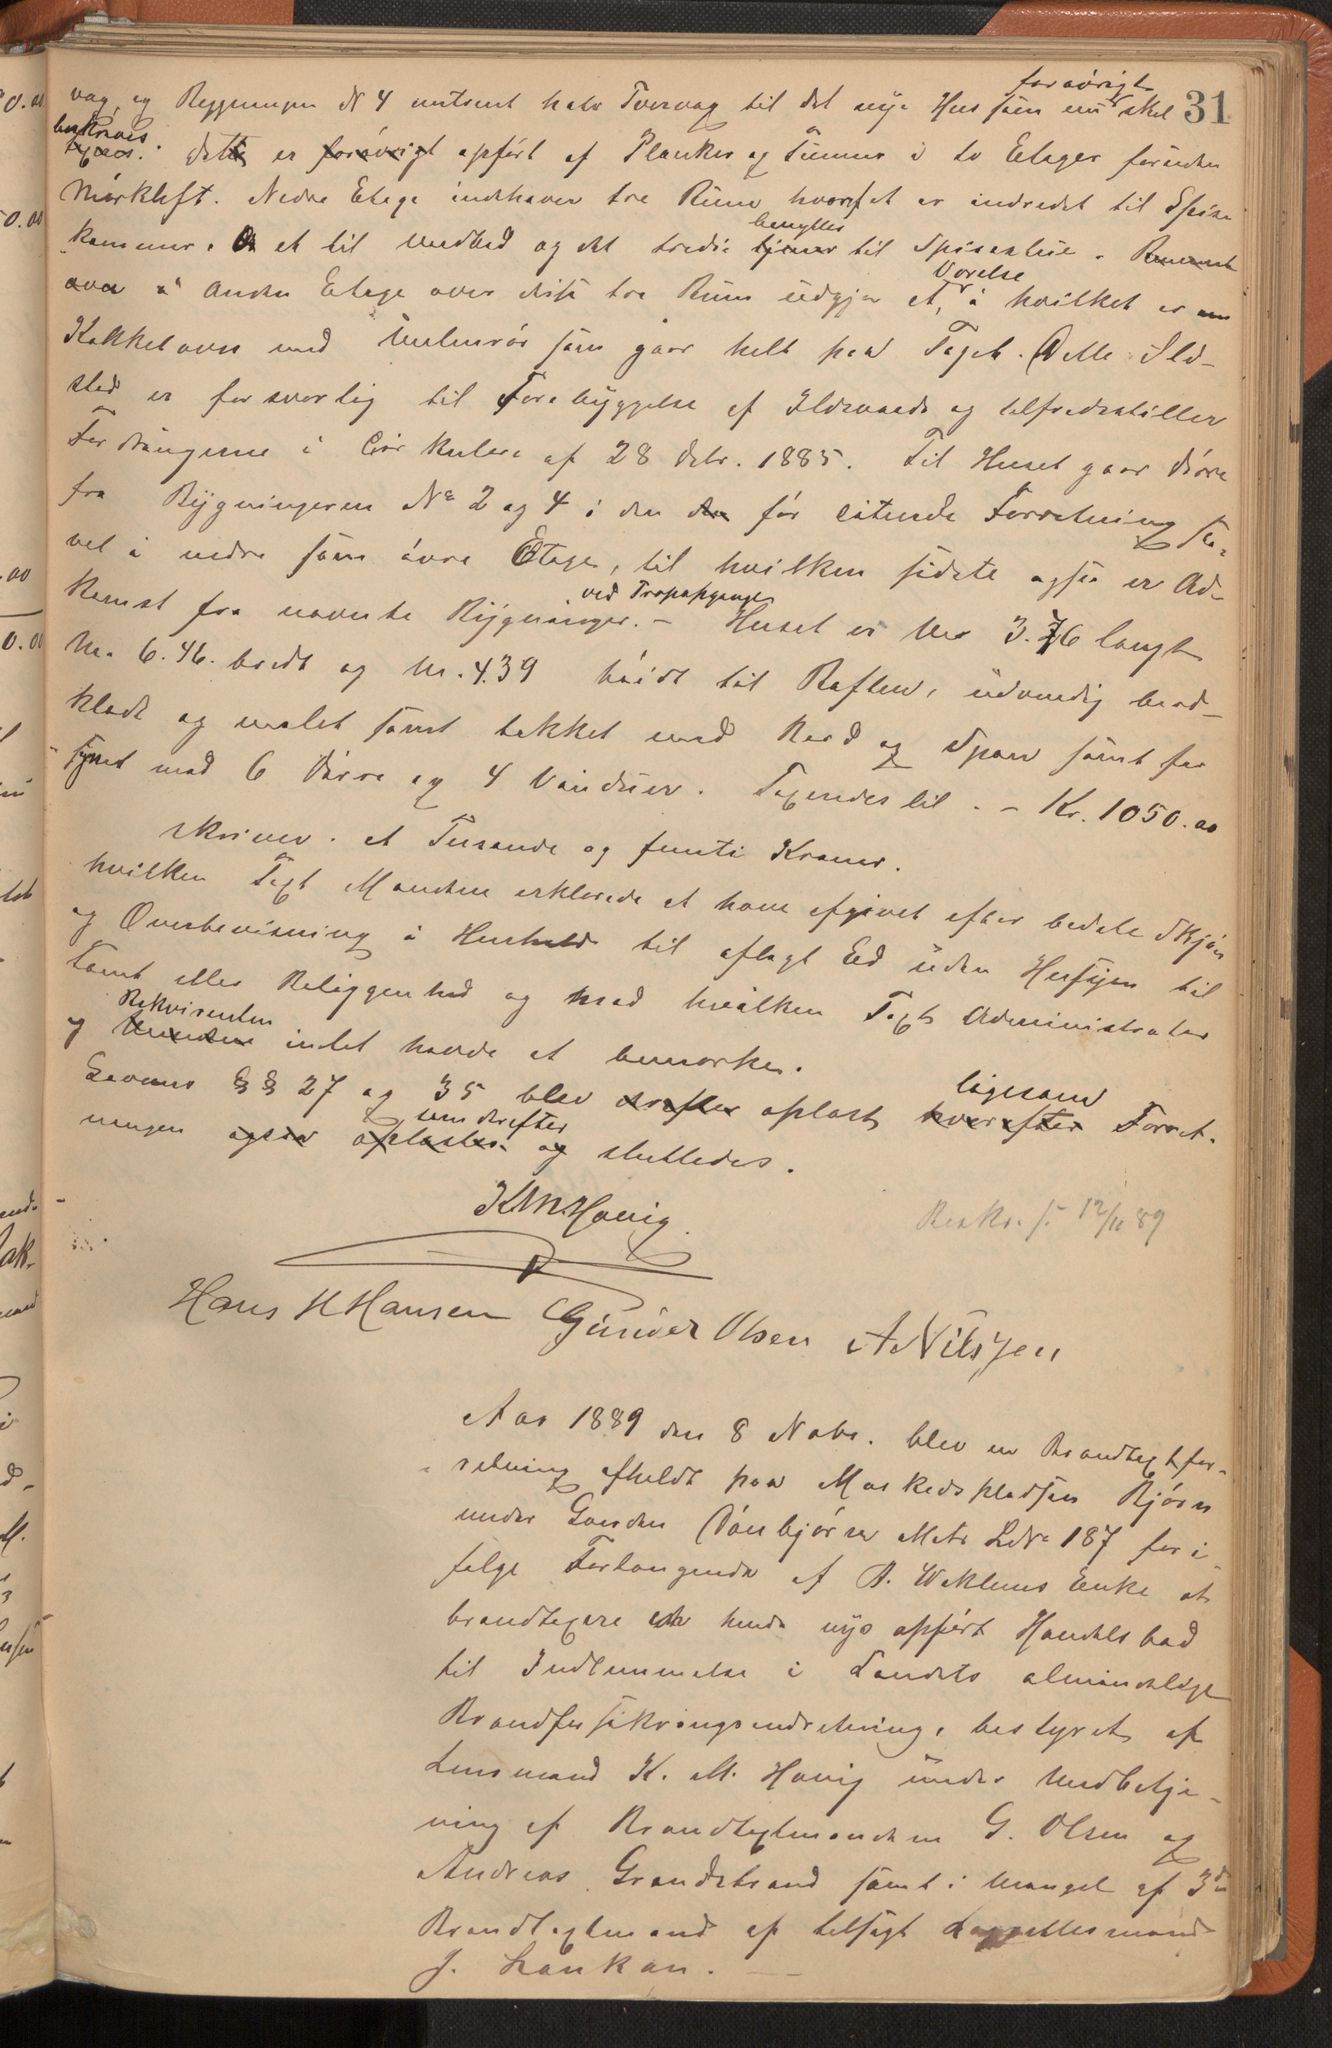 31
foravrigt
væg, og Bygningen N 4 mutsent halv Tværvæg til det nye Hus som nu skal
beskrives
taxeres. dette er forøvrigt opført af Planker og Tømmer i to Etager foruden
Mørkloft. Nedre Etage indehaver tre Rum hvoraf et er indredet til Spise
benyttes
kammer. et til Vedbod og det tredie tjener til Spisestue.
Værelse
over i Anden Etage over disse tre Rum udgjør et, i hvilket er en
Kakkelovn med Rør som gaar helt paa Taget. Dette Ild-
sted er forsvarlig til Forebyggelse af Ildsvaade og tilfredsstiller
Fordringerne i Cirkulære af 28 Debr. 1885. Til Huset gaar Døre
fra Bygningerne No 2 og 4 i den den før citerede Forretning saa-
vel i nedre som øvre Etage, til hvilken sidste ogsaa er Ad-
ved Trapopgange
komst fra nævnte Bygninger. - Huset er Mer 3.76 langt
M. 6.46. bredt og M. 4.39 høidt til Raften, udvendig bord-
klædt og malet samt tækket med Bord og Spaan samt for
synet med 6 Døre og 4 Vinduer. Taxeredes til - Kr. 1050.00
skriver et Tusende og femti Kroner.
hvilken Taxt Mændene erklærede at have afgivet efter bedste Skjøn
og Overbevisning i Henhold til aflagt Ed uden Hensyn til
Tomt eller Beliggenhed og mod hvilken Taxt Administrator
Rekvirenten
og Mændene intet havde at bemærke.
ligesom
Lovens §§ 27 og 35 blev derefter oplæst hvorefter Forret-
um derefter
ningen ogsaa oplæstes og sluttedes.
K M. Hovig
Beskr. s. 12/11 89
Hans H Hansen Gunder Olsen A Nilssen
Aar 1889 den 8 Nobr. blev en Brandtaxtfor-
retning afholdt paa Markedspladsen Bjørn
under Gaarden Dønbjørn Matr LNo 187 for i-
følge Forlangende af B. Enke at
brandtaxere et hende nys opført Handelsbod
til Indlemmelse i Landets almindelige
Brandforsikringsindretning, bestyret af
Lensmand K. M. Hovig under Medbetje-
ning af Brandtaxtmændene G. Olsen og
Andreas Grandstrand samt i Mangel af 3die
Brandtaxtmand af tilsagt Lagrettesmand
J. Lankan. —